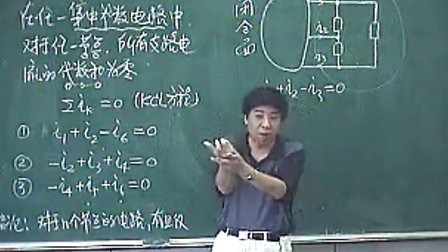 在任一集中参数电路中
对于任一节点，所有支路电
流的代数和为零
Σ iₖ = 0 (KCL方程)
① i₁ + i₂ - i₆ = 0
② -i₂ + i₃ + i₄ = 0
③ -i₄ + i₅ + i₆ = 0
对于n个节点的电路，有且仅
闭
合
面
i₂
i₃
+ i₂ - i₃ = 0